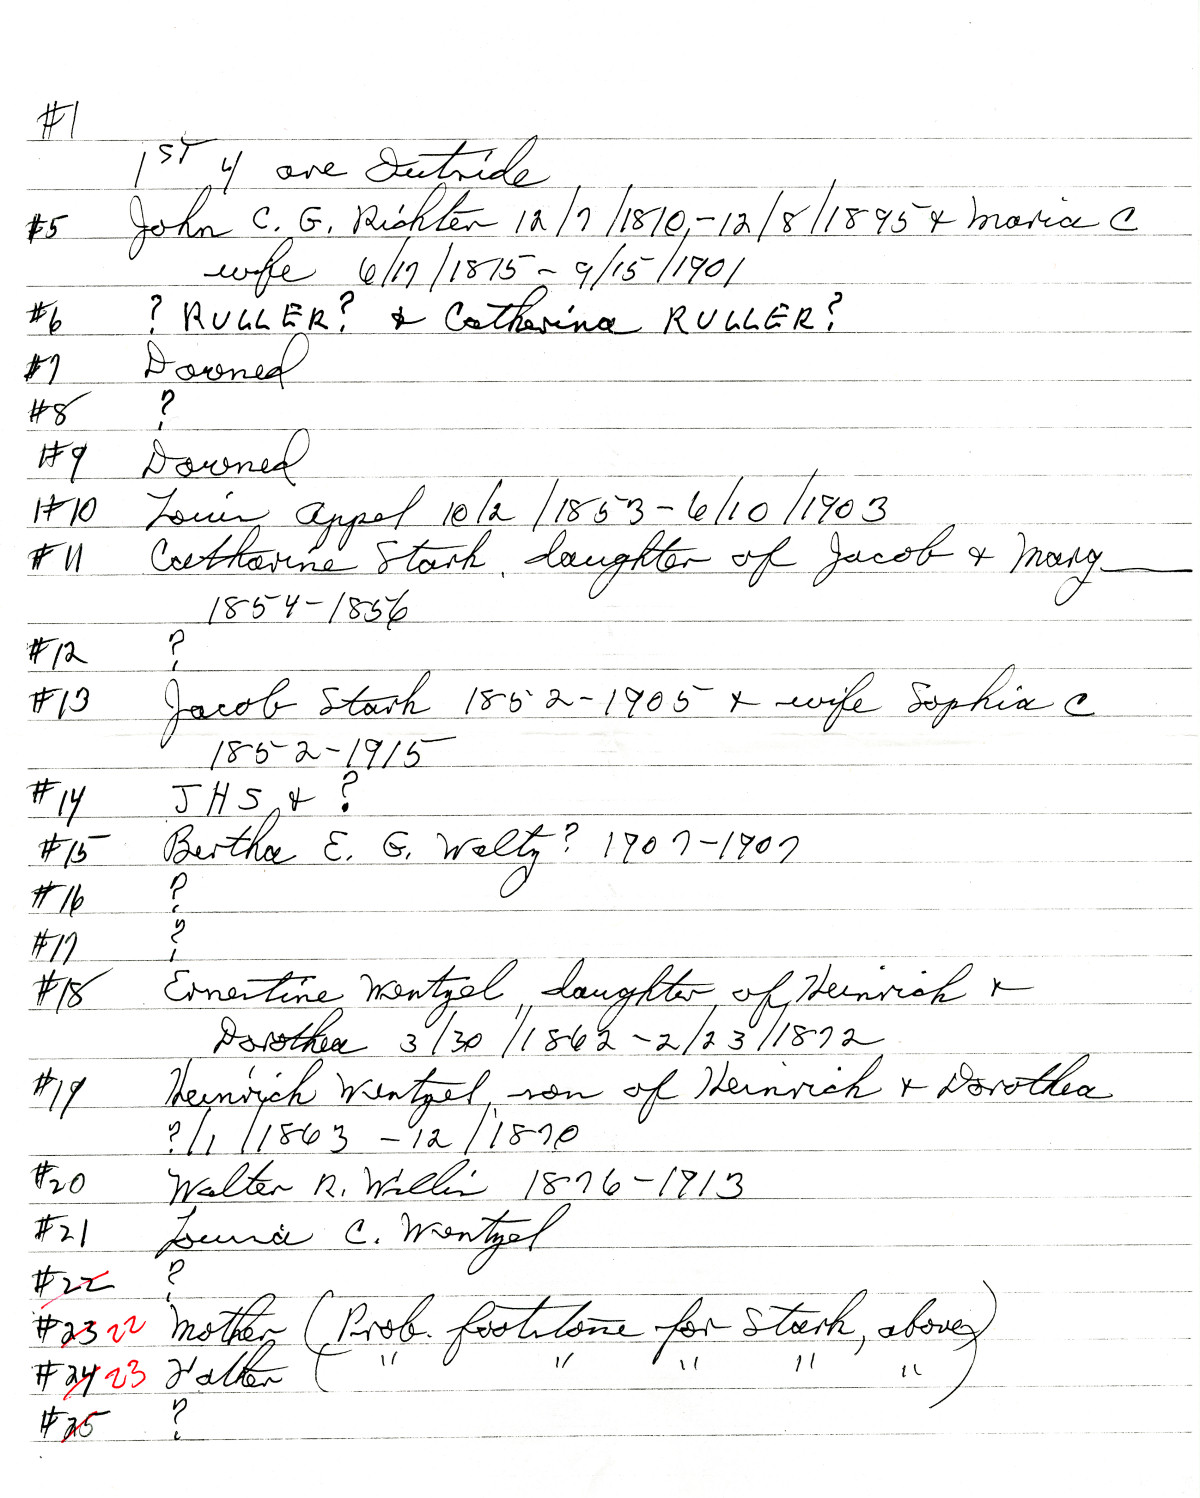 #1
1ST 4 are Outside
#5 John C. G. Richter 12/7/1810,-12/8/1895 & Maria C
wife 6/17/1815 - 9/15/1901
#6 ? RULLER? & Catherina RULLER?
#7 Downed
#8 ?
#9 Downed
#10 Louis Appel 10/2/1853-6/10/1903
#11 Catharine Stark, daughter of Jacob & Mary
1854-1856
#12 ?
#13 Jacob Stark 1852-1905 & wife Sophia C
1852-1915
#14 JHS & ?
#15 Bertha E. G. Waltz? 1907-1907
#16 ?
#17 ?
#18 Ernestine Wentzel, daughter of Heinrich &
Dorothea 3/30/1862-2/23/1872
#19 Heinrich Wentzel, son of Heinrich & Dorothea
?/1/1863 -12/1870
#20 Walter R. Willis 1876-1913
#21 Louisa C. Wentzel
#22 ?
#23 22 Mother (Prob. footstone for Stark, above)
#24 23 Father ( " " " " " )
#25 ?